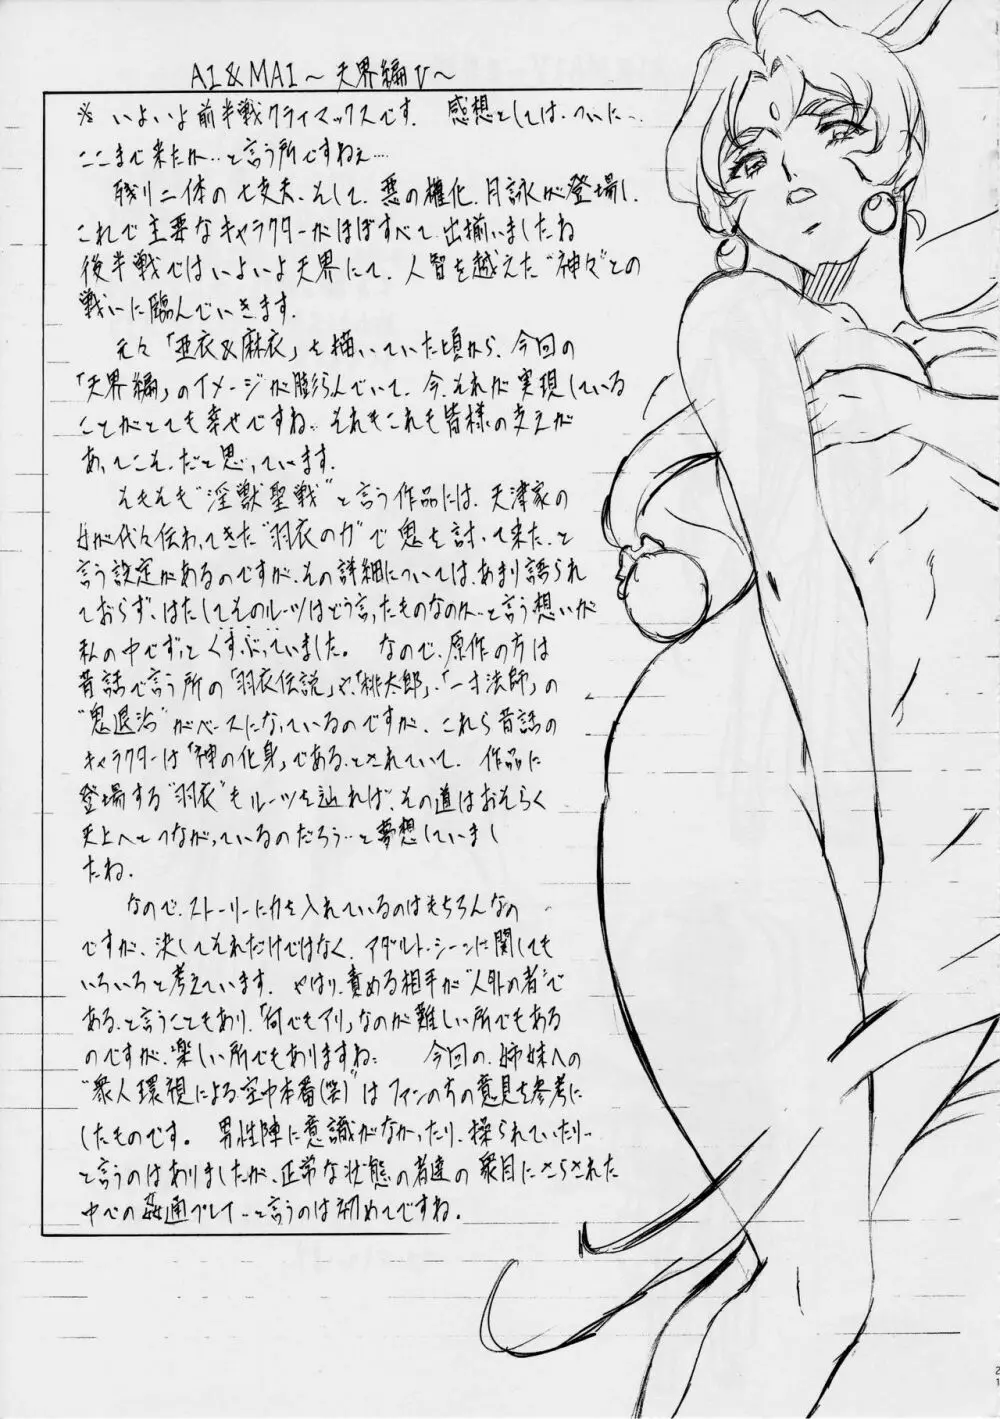 AI&MAI～天界編V～
※ いよいよ前半戦クライマックスです。 感想としては、ついに…
ここまで来たか…と言う所ですねぇ…
残り二体の七丈夫、そして、悪の権化、月詠が登場し、
これで主要なキャラクターがほぼすべて、出揃いましたね
後半戦ではいよいよ天界にて、人智を越えた"神々"との
戦いに臨んでいきます。
元々「亜衣&麻衣」を描いていた頃から、今回の
「天界編」のイメージが膨らんでいて、今、それが実現している
ことがとても幸せですね… それもこれも皆様の支えが
あってこそ、だと思っています。
そもそも"淫獣聖戦"と言う作品には、天津家の
女が代々伝わってきた"羽衣の力"で鬼を討って来た、と
言う設定があるのですが、その詳細については、あまり語られ
ておらず、はたしてそのルーツはどう言ったものなのか…と言う想いが
私の中でずっとくすぶっていました。 なので、原作の方は
昔話で言う所の「羽衣伝説」や、「桃太郎」、「一寸法師」の
"鬼退治"がベースになっているのですが、これら昔話の
キャラクターは「神の化身」である、とされていて、作品に
登場する"羽衣"もルーツを辿れば、その道はおそらく
天上へとつながっているのだろう…と夢想していまし
たね。
なので、ストーリーに力を入れているのはもちろんなの
ですが、決してそれだけではなく、アダルト・シーンに関しても
いろいろと考えています。 やはり、責める相手が"人外の者"で
ある、と言うこともあり、「何でもアリ」なのが難しい所でもある
のですが、楽しい所でもありますね… 今回の、姉妹への
"衆人環視による空中本番(笑)"はファンの方の意見を参考に
したものです。 男性陣に意識がなかったり、操られていたり…
と言うのはありましたが、正常な状態の者達の衆目にさらされた
中での姦通プレイ…と言うのは初めてですね。
21